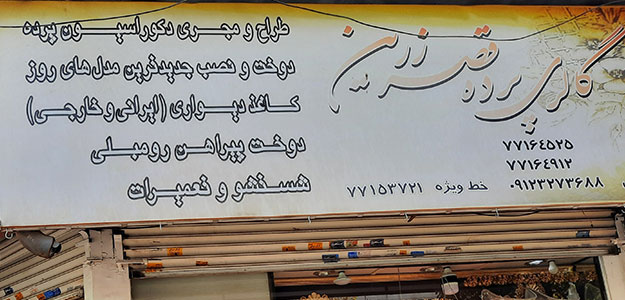 گالری پرده قصر زرین
طراح و مجری دکوراسیون پرده
دوخت و نصب جدیدترین مدل های روز
کاغذ دیواری (ایرانی و خارجی)
دوخت پیراهن رومبلی
شستشو و تعمیرات
۷۷۱۶۴۵۲۵
۷۷۱۶۴۹۱۲
۰۹۱۲۳۲۷۳۶۸۸
خط ویژه ۷۷۱۵۳۷۲۱